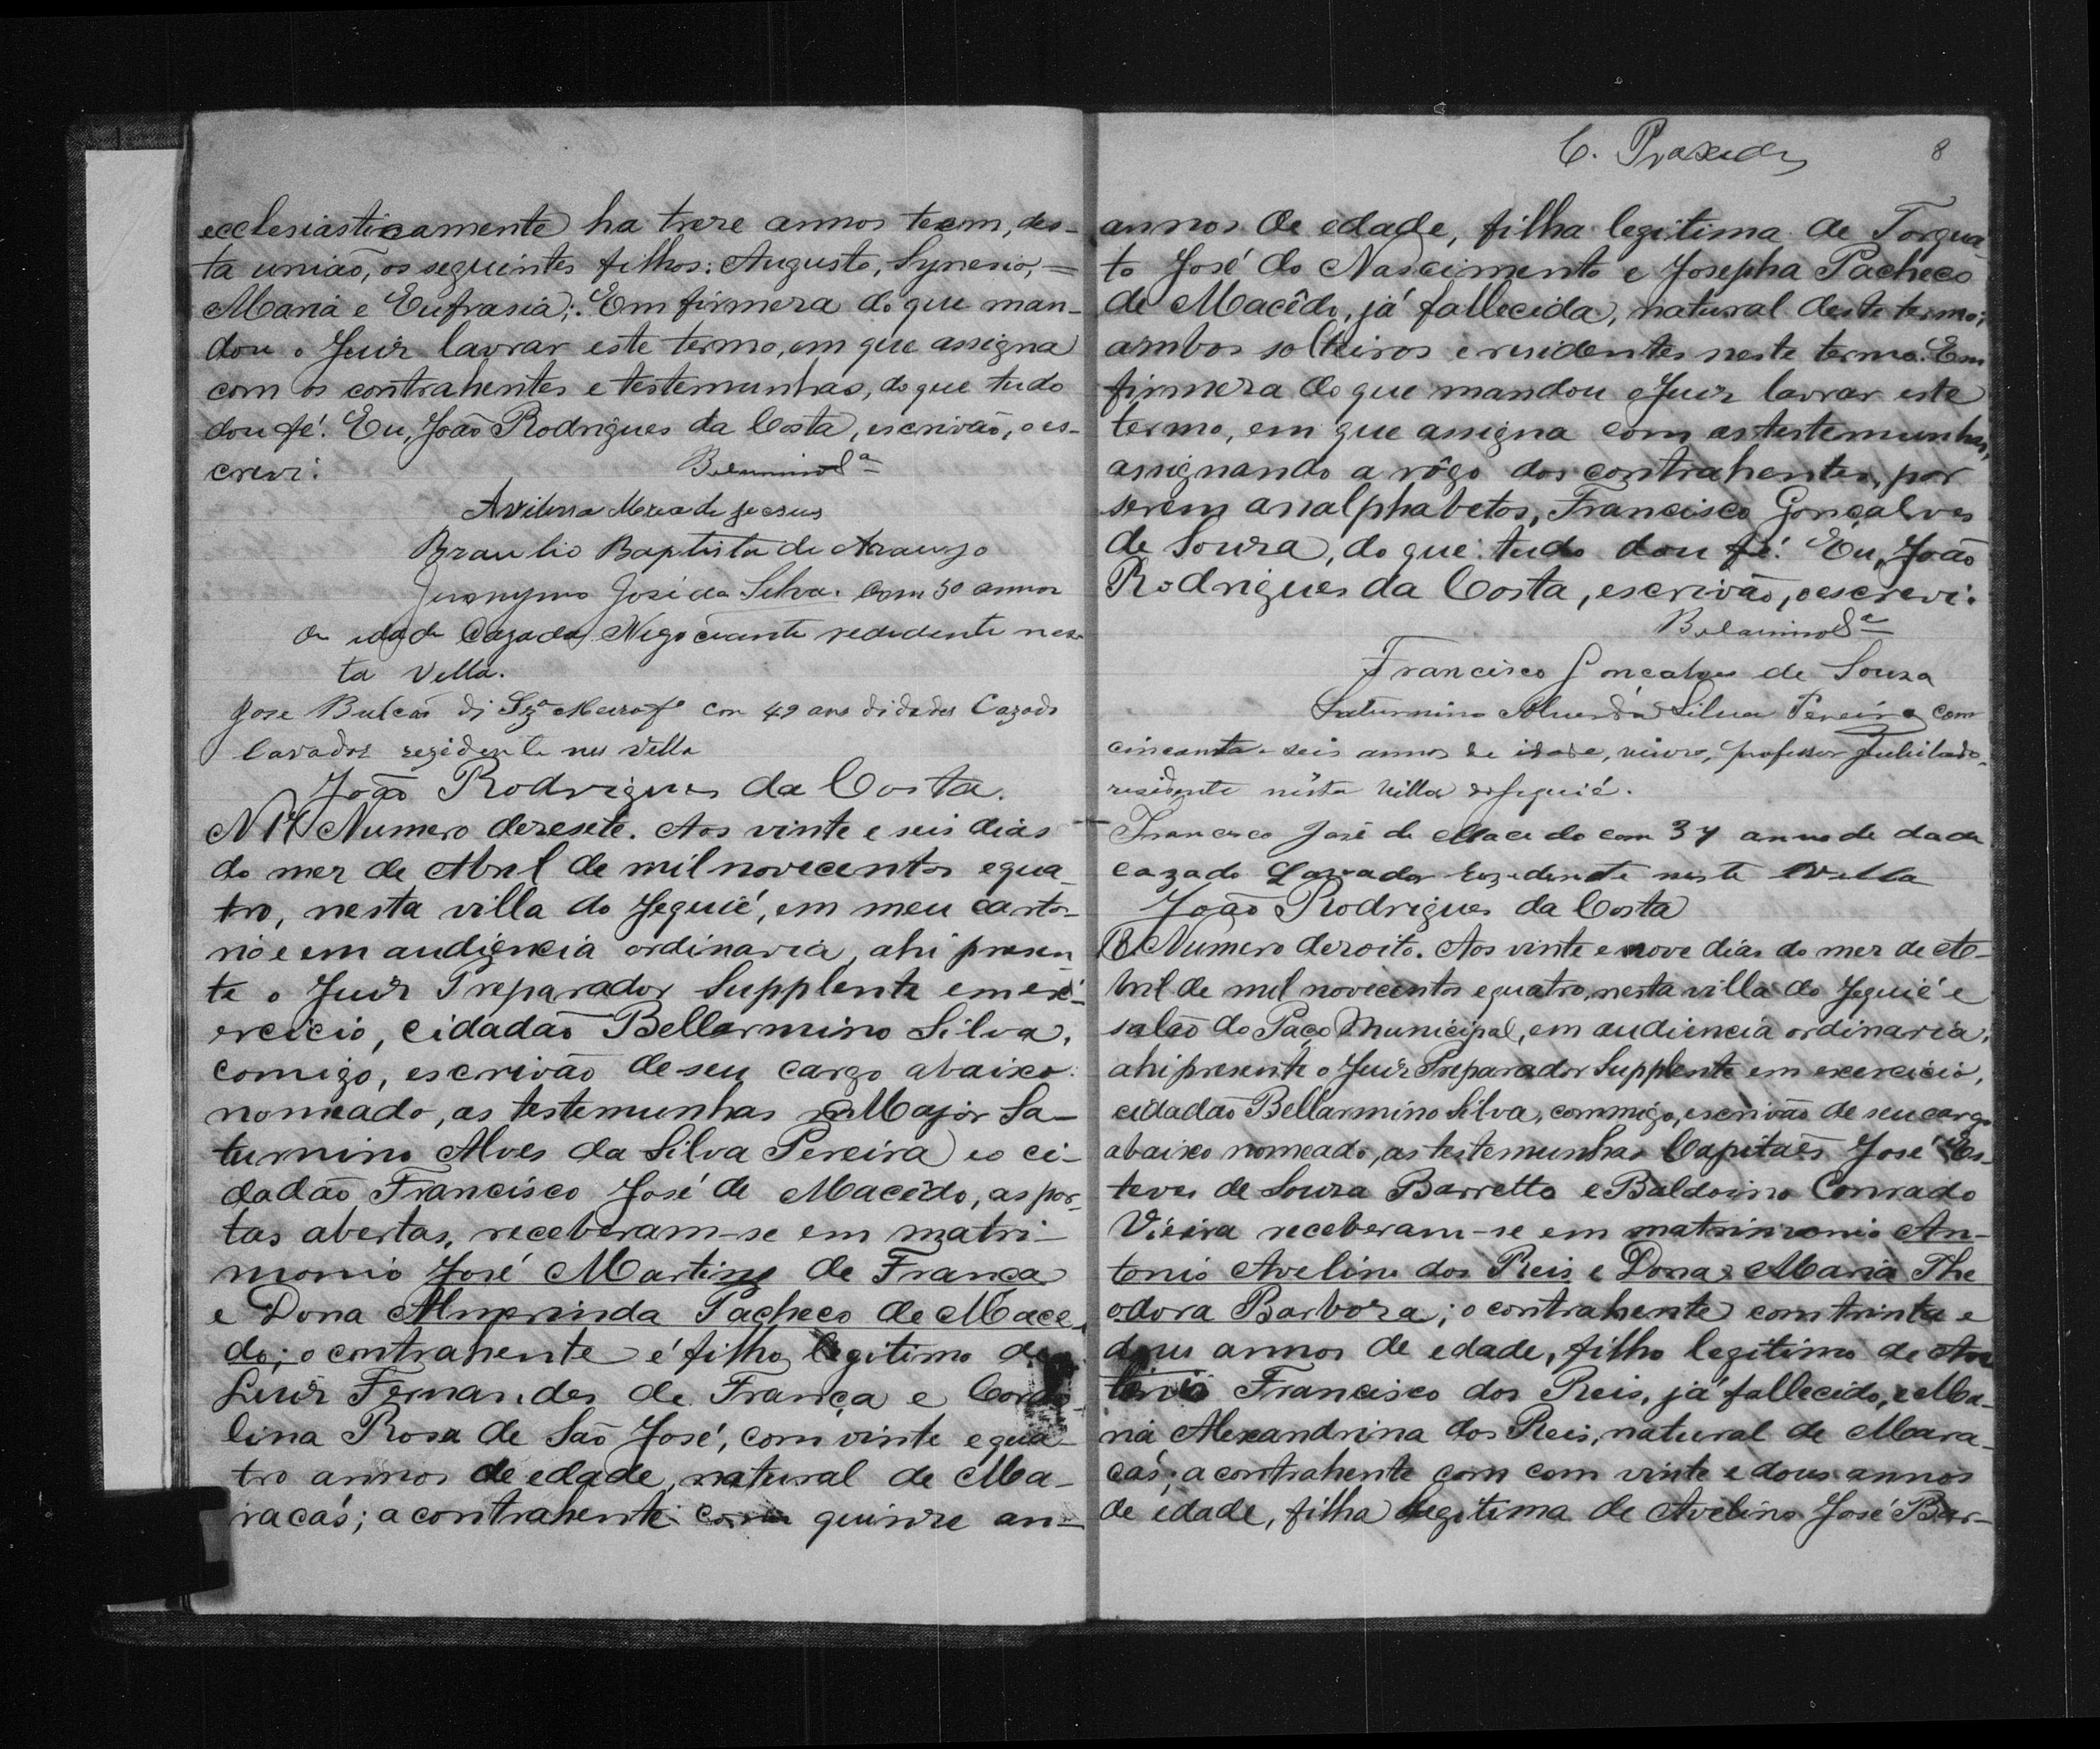 ecclesiasticamente ha treze annos teem, des-
ta união, os seguintes filhos: Augusto, Synesio, =
Maria e Eufrasia;. Em firmeza do que man-
dou o Juiz lavrar este termo, em que assigna
com os contrahentes e testemunhas, do que tudo
dou fé. Eu, João Rodrigues da Costa, escrivão, o es-
crevi.
de Jeszus
Braulio Baptista de Araujo
Jeronymo José da Silva. Com 50 annos
de idade Cazado Nigociante redidente nes-
ta Vella.
Jose Bulcão di con 49 ano didade Cazado
lavador regidente nes Vella
João Rodrigues da Costa.
N 17 Numero dezesete. Aos vinte e seis dias
do mez de Abril de mil novecentos e qua-
tro, nesta villa do Jequié, em meu carto-
rio e em audiencia ordinaria, ahi presen-
te o Juiz Preparador Supplente em ex-
ercicio, cidadão Bellarmino Silva,
comigo, escrivão de seu cargo abaixo
nomeado, as testemunhas Major Sa-
turnino Alves da Silva Pereira e o ci-
dadão Francisco José de Macêdo, as por-
tas abertas, receberam-se em matri-
monio José Martins de França
e Dona Almerinda Pacheco de Mace-
do; o contrahente é filho legitimo de
Luiz Fernandes de França e
lina Rosa de São José, com vinte e qua-
tro annos de edade, natural de Ma-
racás; a contrahente com quinze an-
C. Praxedes 8
annos de edade, filha legitima de Torqua-
to José do Nascimento e Josepha Pacheco
de Macêdo, já fallecida, natural deste termo;
ambos solteiros e residentes neste termo. Em
firmeza do que mandou o Juiz lavrar este
termo, em que assigna com as testemunhas,
assignando a rôgo dos contrahentes, por
serem analphabetos, Francisco Gonçalves
de Souza, do que tudo dou fé. Eu, João
Rodrigues da Costa, escrivão, o escrevi.
Francisco Gonçalves de Souza
Saturnino Alves da Silva Pereira com
cincoenta e seis annos de idade, viuvo, professor Jubilado,
residente nésta Villa de Jequié.
Francisco José de Macedo com 37 anno de dade
cazado Lavador Rezedente neste Vella
João Rodrigues da Costa
18 Numero dezoito. Aos vinte e nove dias do mez de A-
bril de mil novecentos e quatro, nesta villa do Jequié e
salão do Paço Municipal, em audiencia ordinaria,
ahi presente o Juiz Preparador Supplente em exercicio,
cidadão Bellarmino Silva, commigo, escrivão de seu cargo
abaixo nomeado, as testemunhas Capitães José Es-
teves de Souza Barretto e Baldoino Conrado
Vieira receberam-se em matrimonio An-
tonio Avelino dos Reis e Dona Maria The
odora Barboza; o contrahente com trinta e
dous annos de edade, filho legitimo de An
tonio Francisco dos Reis, já fallecido, e Ma-
ria Alexandrina dos Reis, natural de Mara-
cás; a contrahente com com vinte e dous annos
de edade, filha legitima de Avelino José Bar-